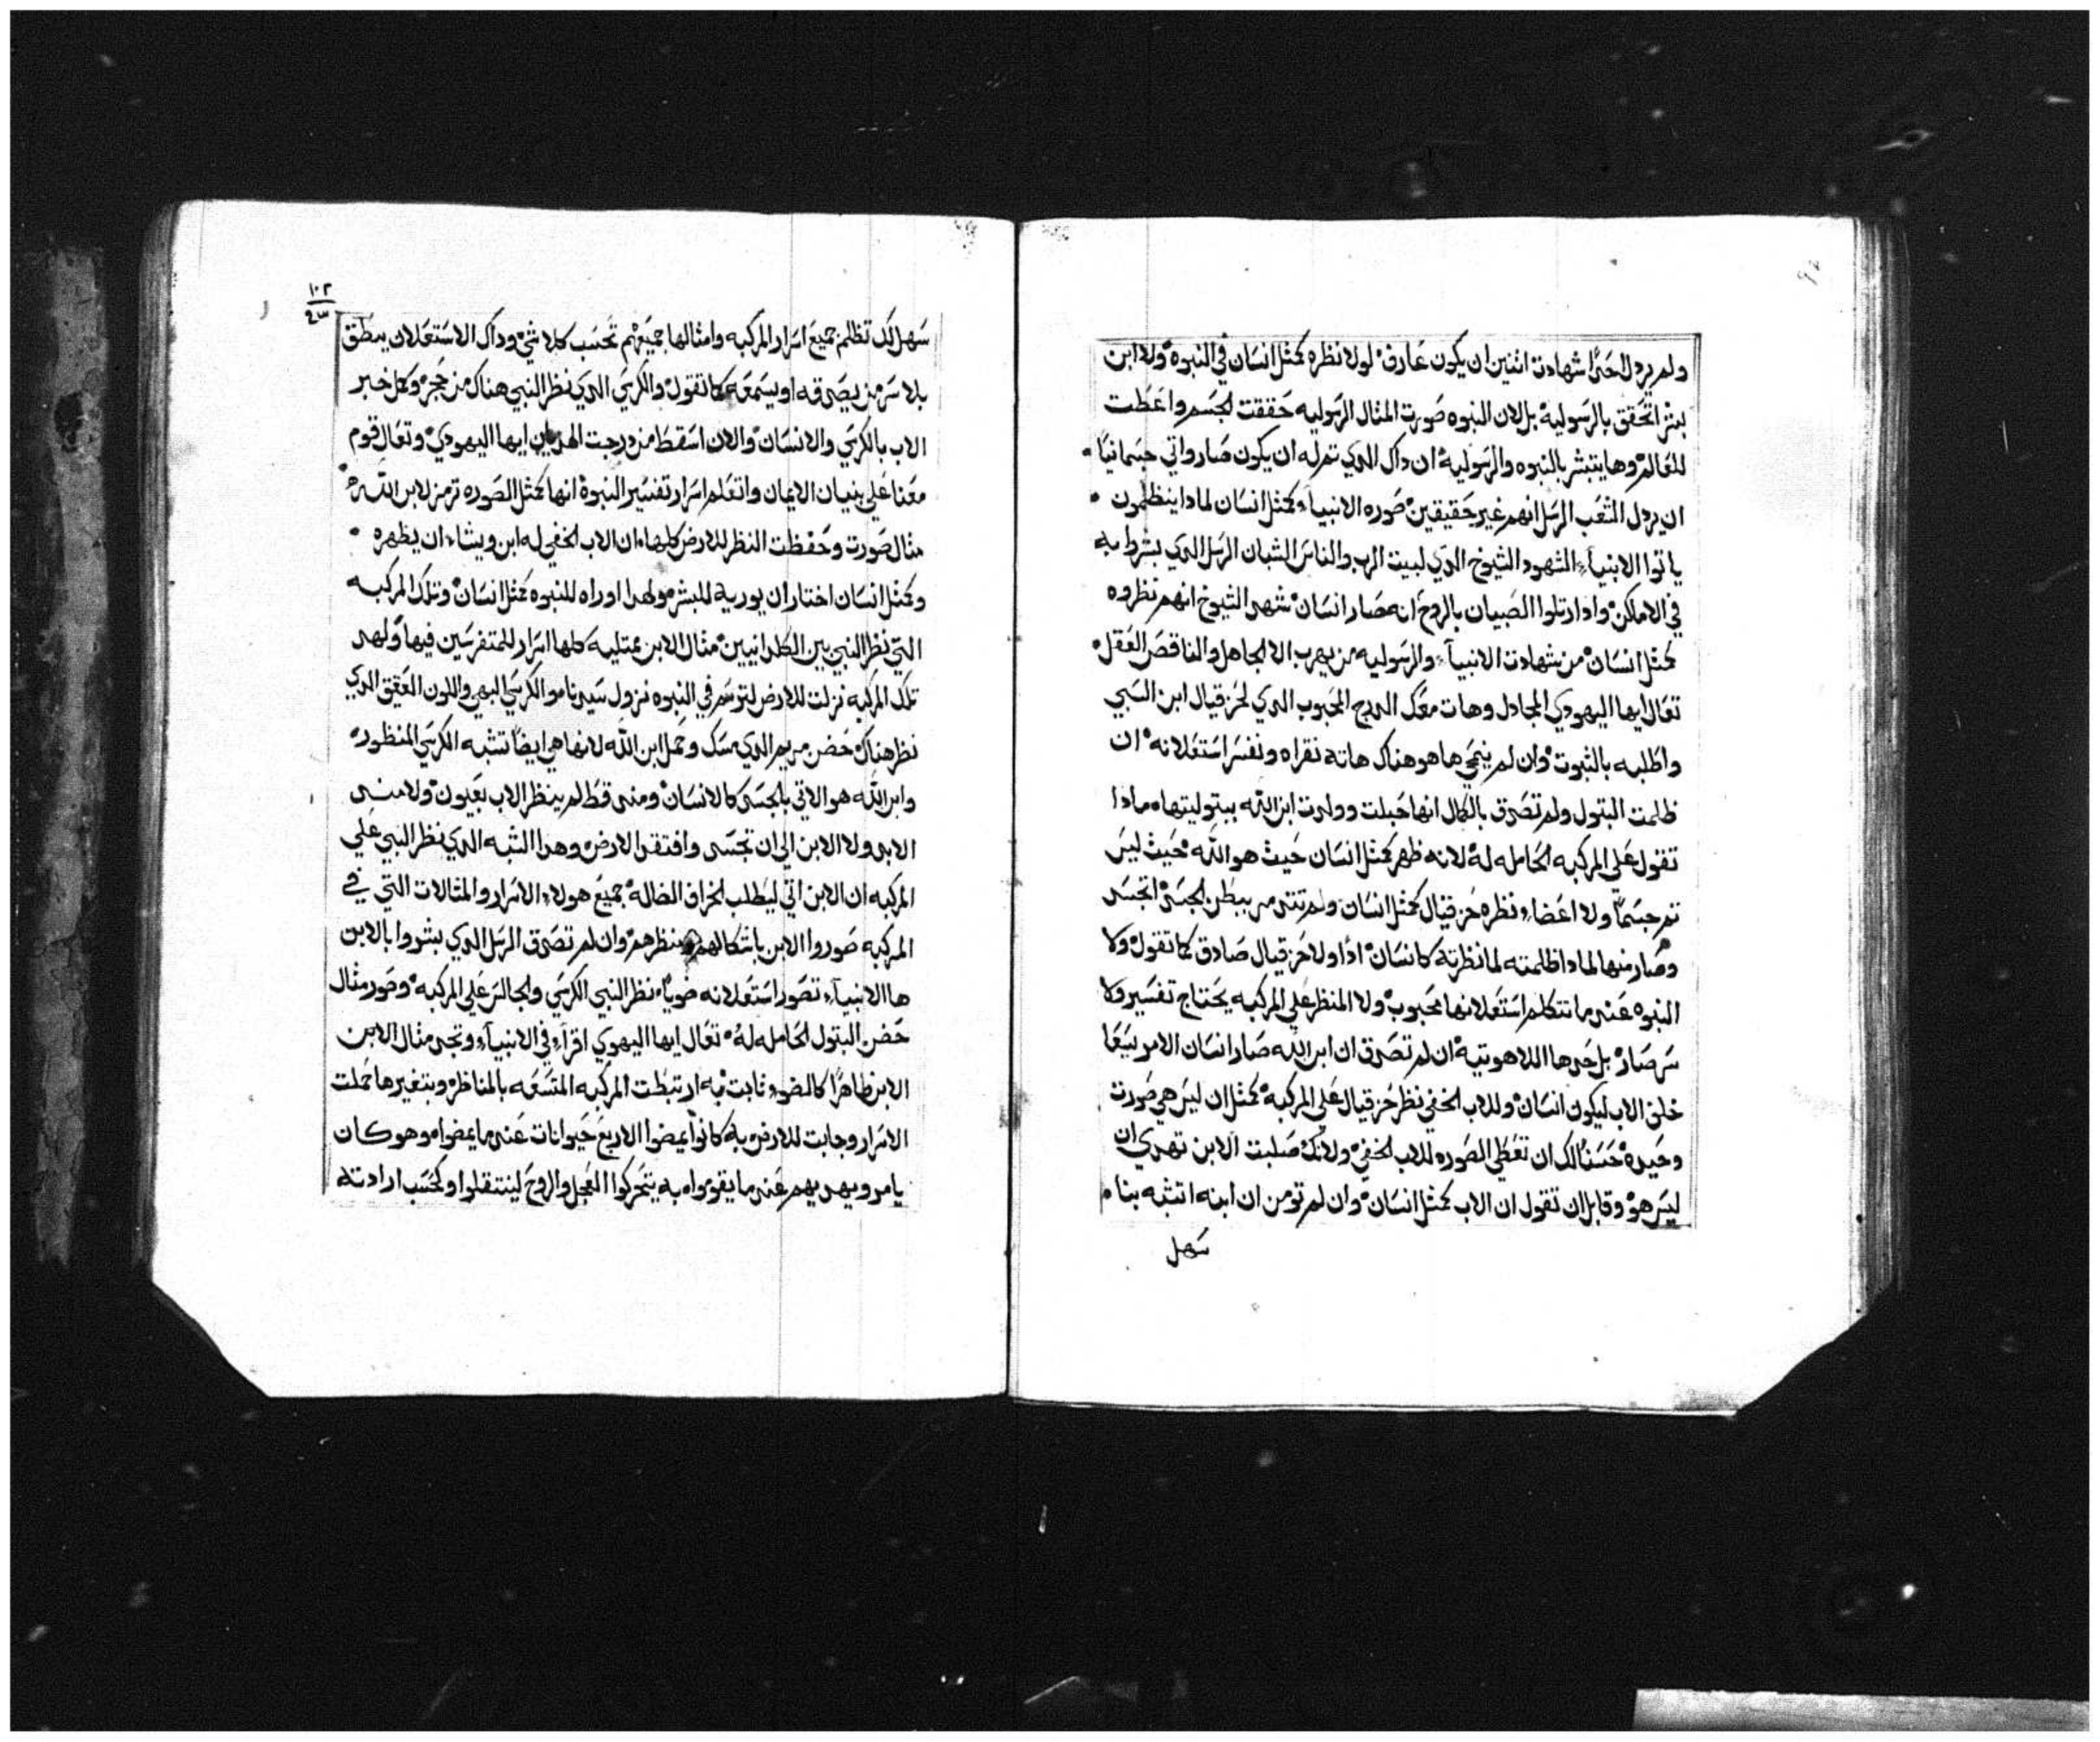 ولم يردل احدًا شهادت اثنين ان يكون عارف لولا نظره كمثل انسان في النبوه ولا ابن
بشر اتحقق بالرسوليه بل لان النبوه صورت المثال الرسوليه حققت الجسم واعطت
للعالم وها يتبشر بالنبوه والرسوليه ان داك الدي تمرله ان يكون صار واتي جسمانيًا
ان يردل الشعب الرسل انهم غير حقيقين صوره الانبياء كمثل انسان لمادا ينظلمون
ياتوا الانبياء الشهود الشيوخ الدي لبيت الرب والناس الشبان الرسل الدي بشروا به
في الاماكن وادا رتلوا الصبيان بالروح انه صار انسان شهد الشيوخ انهم نظروه
كمثل انسان من شهادت الانبياء والرسوليه من يهرب الا الجاهل والناقص العقل
تعال ايها اليهودي المجادل وهات معك الدرج المحبوب الدي لحزقيال ابن السبي
واطلبه بالثبوت وان لم ينجي ها هو هناك هاته نقراه ونفسر استعلانه ان
ظلمت البتول ولم تصدق بالكمال انها حبلت وولدت ابن الله ببتوليتها مادا
تقول علي المركبه الحامله له لانه ظهر كمثل انسان حيث هو الله حيث ليس
تم جسمًا ولا اعضاء نظره حزقيال كمثل انسان ولم تتنى مريم ببطن الجسد اتجسد
وصار منها لمادا ظلمته لما نظرته كانسان ادًا ولا حزقيال صادق كما تقول ولا
النبوه عندما تتكلم استعلانها محبوب ولا المنظر علي المركبه يحتاج تفسير ولا
سر صار بل حدها اللاهوتيه ان لم تصدق ان ابن الله صار انسان الامر يتبعا
خلق الاب ليكون انسان وللاب الخفي نظر حزقيال علي المركبه كمثل ان ليس هي صورت
وحيده حسنًا لك ان تعطي الصوره للاب الخفي ولانك صلبت الابن تهدي ان
ليس هو وقابل ان تقول ان الاب كمثل انسان وان لم تومن ان ابنه اتشبه بنا
سهل
١٠٢
سهل لك تظلم جميع اسرار المركبه وامثالها جميعهم تحسب كلا شي وداك الاستعلان ينطق
بلا سر من يصدقه او يسمعه كما تقول والكرسي الدي نظر النبي هناك من حجر وكل خبر
الاب بالكرسي والانسان والان اسقط من درجت الهديان ايها اليهودي وتعال قوم
معنا علي بنيان الايمان واتعلم اسرار تفسير النبوه انها كمثل الصوره ترمز لابن الله
مثال صورت وحفظت النظر للارض كلها ان الاب الخفي له ابن ويشاء ان يظهره
وكمثل انسان اختار ان يوريه للبشر ولهدا اوراه للنبوه كمثل انسان وتلك المركبه
التي نظر النبي بين الكلدانيين مثال الابن ممتليه كلها اسرار للمتفرسين فيها ولهدا
تلك المركبه نزلت للارض لترسم في النبوه نزول سيدنا مو الكرسي البهي واللون العقيق الدي
نظر هناك حضن مريم الدي مسك وحمل ابن الله لانها هي ايضًا تشبه الكرسي المنظور
وابن الله هو الاتي بالجسد كالانسان ومند قط لم ينظر الاب بعيون ولا مند
الابد ولا الابن الي ان تجسد وافتقد الارض وهدا الشبه الدي نظر النبي علي
المركبه ان الابن اتي ليطلب الخراف الضاله جميع هولاء الاسرار والمثالات التي في
المركبه صوروا الابن باشكالهم ومنظرهم وان لم تصدق الرسل الدي بشروا بالابن
ها الانبياء تصور استعلانه ضويًا نظر النبي الكرسي والجالس علي المركبه وصور مثال
حضن البتول الحامله له تعال ايها اليهودي اقراء في الانبياء وتجد مثال الابن
الابن ظاهرًا كالضوء ثابت به ارتبطت المركبه المتسعه بالمناظر وبتغيرها حملت
الاسرار وجابت للارض به كانوا يمضوا الاربع حيوانات عندما يمضوا هو وهو كان
يامر ويهديهم عندما يقوموا به يتحركوا العجل والروح لينتقلوا وكحسب ارادته